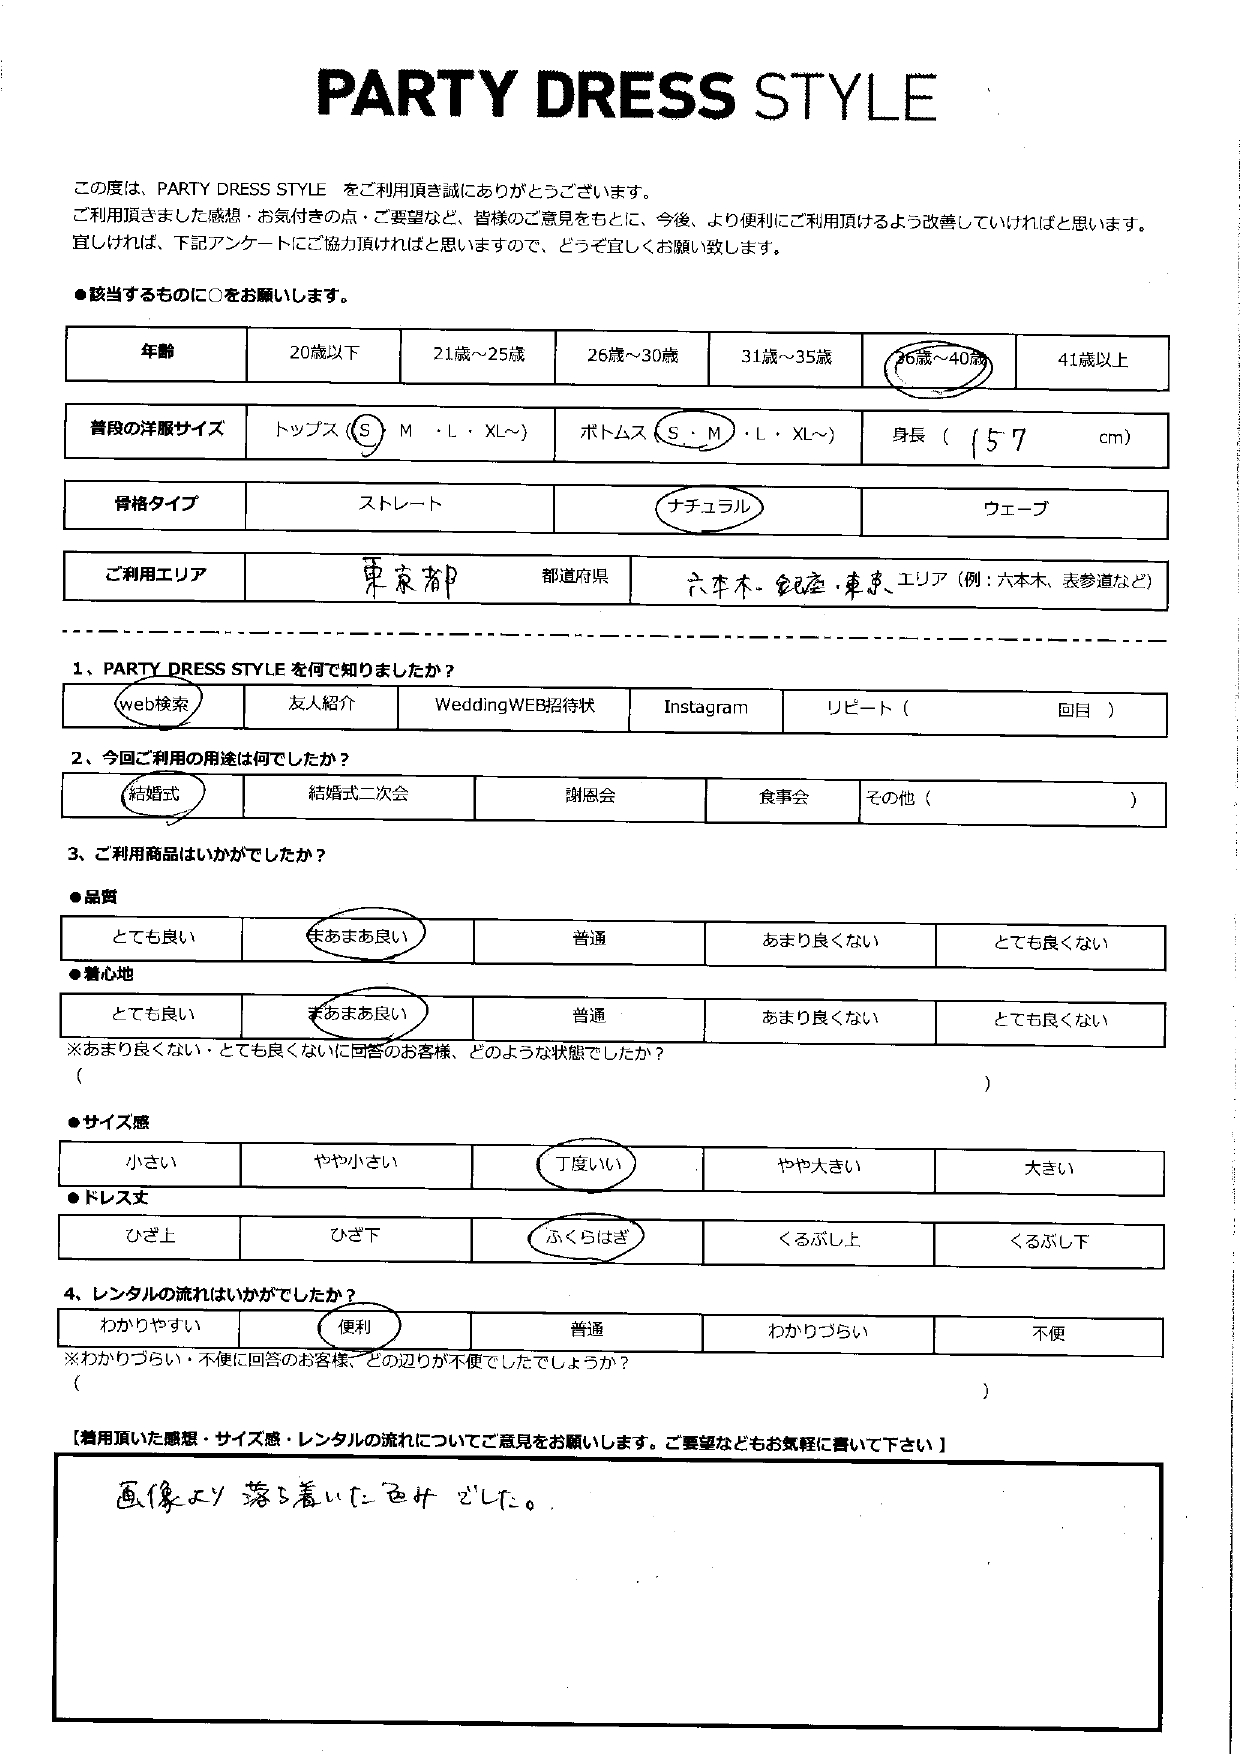 PARTY DRESS STYLE
この度は、PARTY DRESS STYLE をご利用頂き誠にありがとうございます。
ご利用頂きました感想・お気付きの点・ご要望など、皆様のご意見をもとに、今後、より便利にご利用頂けるよう改善していければと思います。
宜しければ、下記アンケートにご協力頂ければと思いますので、どうぞ宜しくお願い致します。
●該当するものに○をお願いします。
年齢 20歳以下 21歳～25歳 26歳～30歳 31歳～35歳 36歳～40歳 41歳以上
普段の洋服サイズ トップス（S・ M ・L・ XL～) ボトムス（S・M ・L・ XL～) 身長（ 157 cm）
骨格タイプ ストレート ナチュラル ウェーブ
ご利用エリア 東京都 都道府県 六本木・銀座・東京、エリア（例：六本木、表参道など）
1、PARTY DRESS STYLE を何で知りましたか？
web検索 友人紹介 WeddingWEB招待状 Instagram リピート（ 回目 ）
2、今回ご利用の用途は何でしたか？
結婚式 結婚式二次会 謝恩会 食事会 その他（ ）
3、ご利用商品はいかがでしたか？
●品質
とても良い まあまあ良い 普通 あまり良くない とても良くない
●着心地
とても良い まあまあ良い 普通 あまり良くない とても良くない
※あまり良くない・とても良くないに回答のお客様、どのような状態でしたか？
（ ）
●サイズ感
小さい やや小さい 丁度いい やや大きい 大きい
●ドレス丈
ひざ上 ひざ下 ふくらはぎ くるぶし上 くるぶし下
4、レンタルの流れはいかがでしたか？
わかりやすい 便利 普通 わかりづらい 不便
※わかりづらい・不便に回答のお客様、どの辺りが不便でしたでしょうか？
（ ）
【着用頂いた感想・サイズ感・レンタルの流れについてご意見をお願いします。ご要望などもお気軽に書いて下さい 】
画像より落ち着いた色みでした。